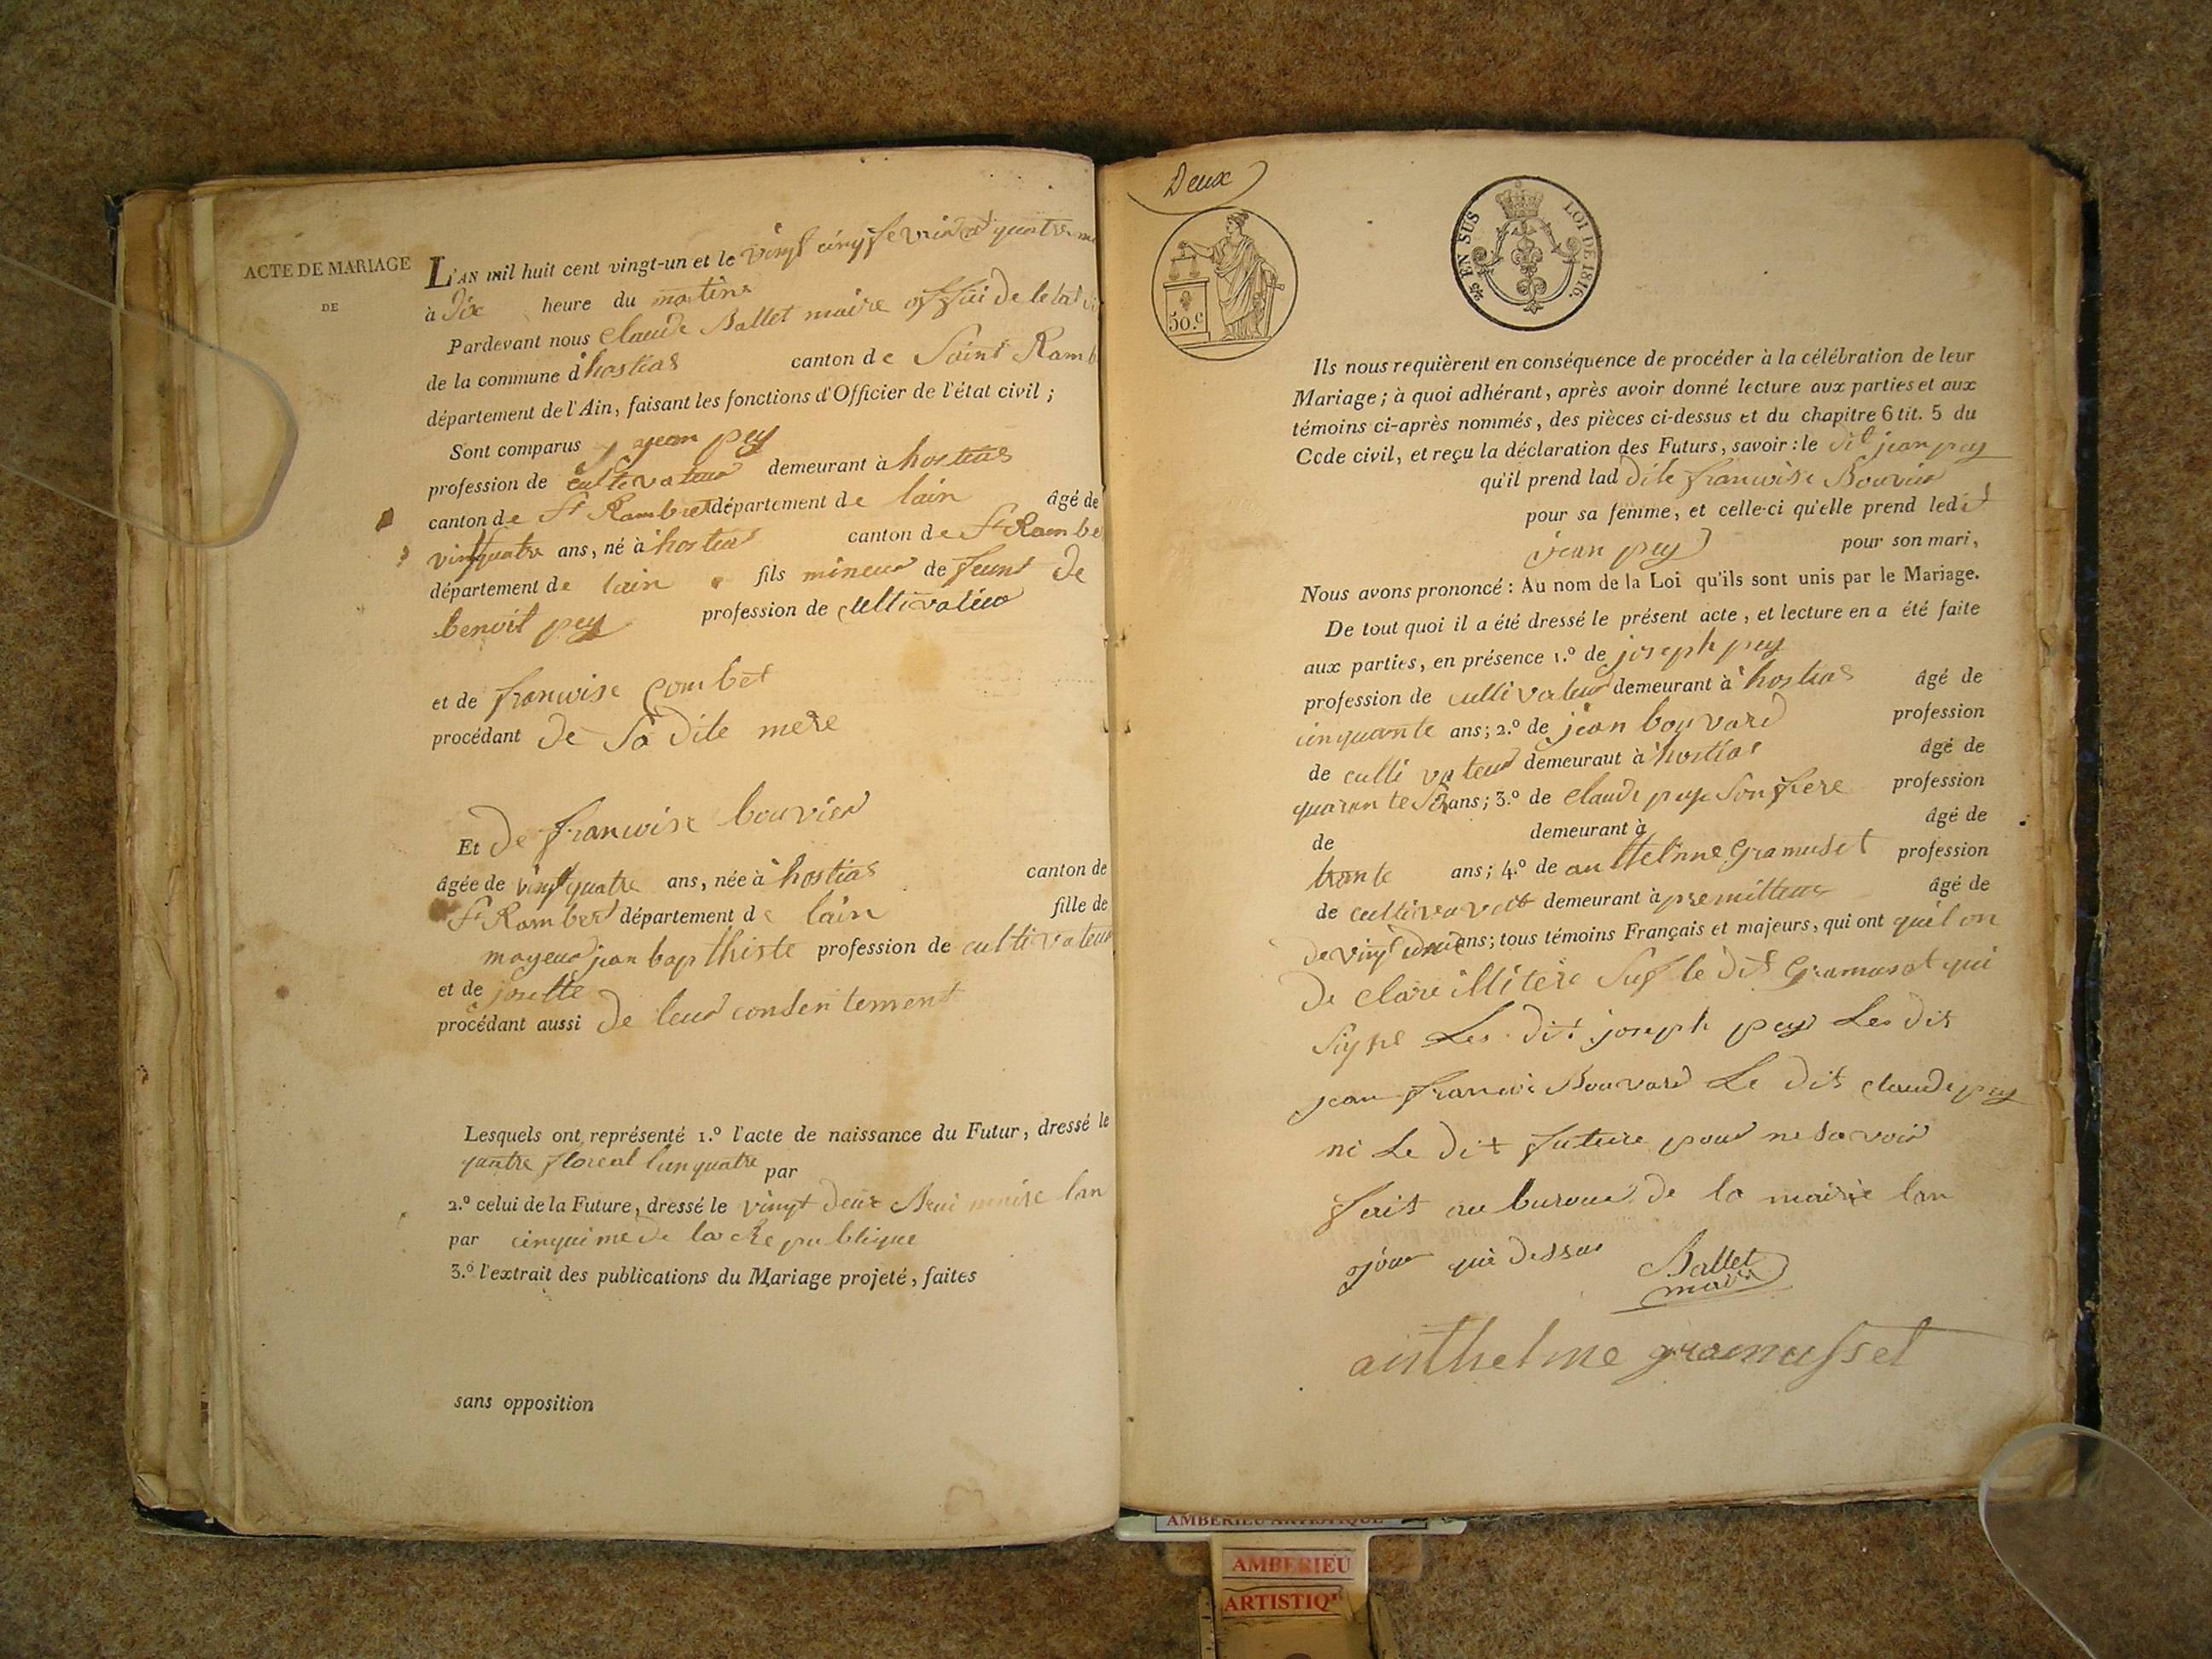 ACTE DE MARIAGE
DE
L'AN mil huit cent vingt-un et le vingt cinq fevrier quatre
à Dix heure du matins
Pardevant nous claude Ballet maire de letat
de la commune d'hostias canton de Saint Ramb
département de l'Ain, faisant les fonctions d'Officier de l'état civil ;
Sont comparus jean pey
profession de cultivateur demeurant à hostias
canton de St Rambert département de lain âgé de
vingt quatre ans, né à hostias canton de St Rambe
département de lain fils mineur de feu de
benoit pey profession de cultivateur
et de francoise Combet
procédant de sa dite mere
Et de francoise bouvier
âgée de vingt quatre ans, née à hostias canton de
St Rambert département de lain fille de
mayeur jean bapthiste profession de cultivateur
et de josette
procédant aussi de leur consentement
Lesquels ont représenté 1.º l'acte de naissance du Futur, dressé le
quatre floreal lan quatre par
2.º celui de la Future, dressé le vingt deux lan
par cinquime de la Re publique
3.º l'extrait des publications du Mariage projeté, faites
sans opposition
Deux
50.c
25 EN SUS LOI DE 1816.
Ils nous requièrent en conséquence de procéder à la célébration de leur
Mariage ; à quoi adhérant, après avoir donné lecture aux parties et aux
témoins ci-après nommés, des pièces ci-dessus et du chapitre 6 tit. 5 du
Code civil, et reçu la déclaration des Futurs, savoir : le dit jean pey
qu'il prend lad dite francoise Bouvier
pour sa femme, et celle-ci qu'elle prend ledit
jean pey pour son mari,
Nous avons prononcé : Au nom de la Loi qu'ils sont unis par le Mariage.
De tout quoi il a été dressé le présent acte, et lecture en a été faite
aux parties, en présence 1.º de joseph pey
profession de cultivateur demeurant à hostias âgé de
cinquante ans ; 2.º de jean bouvard profession
de culti vateur demeuraut à hostias âgé de
quarante ans ; 3.º de claude pey son frere profession
de demeurant à âgé de
trante ans ; 4.º de anthelme Gramuset profession
de demeurant à premillieu âgé de
de vingt ans ; tous témoins Français et majeurs, qui ont quil on
de clare illitere le dit Gramuset qui
signe Les dit joseph pey Les dit
jean francois Bouvard Le dit claude pey
ni Le dit future pour ne savoir
fait au bureau de la mairie lan
jour que dessus Ballet
maire
anthelme gramusset
AMBERIEU ARTISTIQUE
AMBERIEU
ARTISTIQ